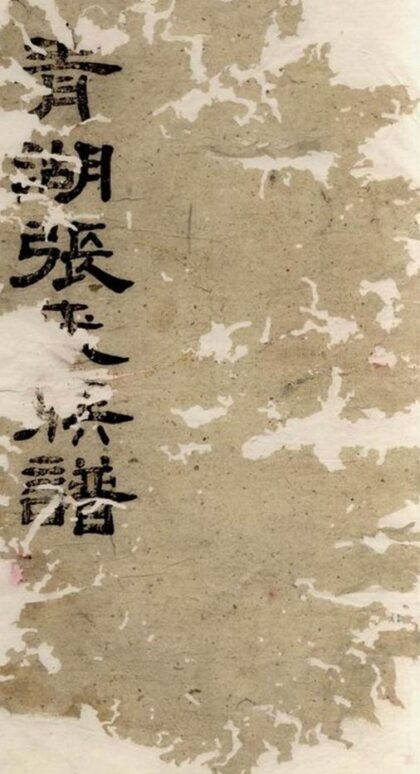 青湖張氏族譜